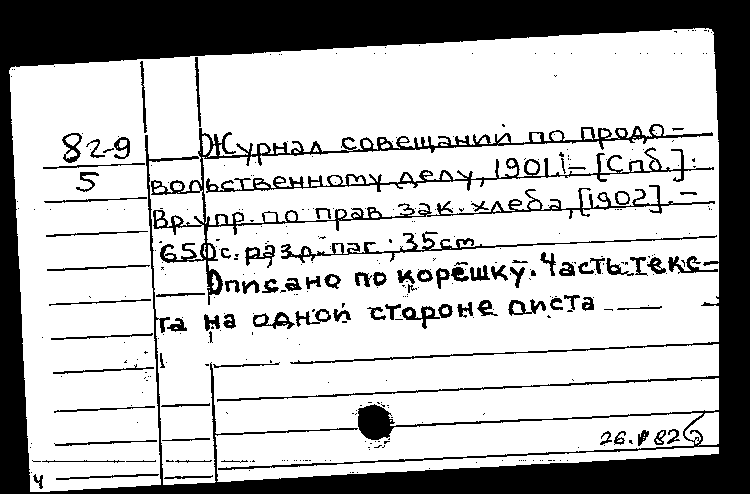 82-9
5
Журнал совещаний по продо-
вольственному делу, 1901. - [Спб.]:
Вр. упр. по прав зак. хлеба, [1902]. -
650с. разд. паг ; 35см.
Описано по корешку. Часть текс-
та на одной стороне листа
26.V 82
4